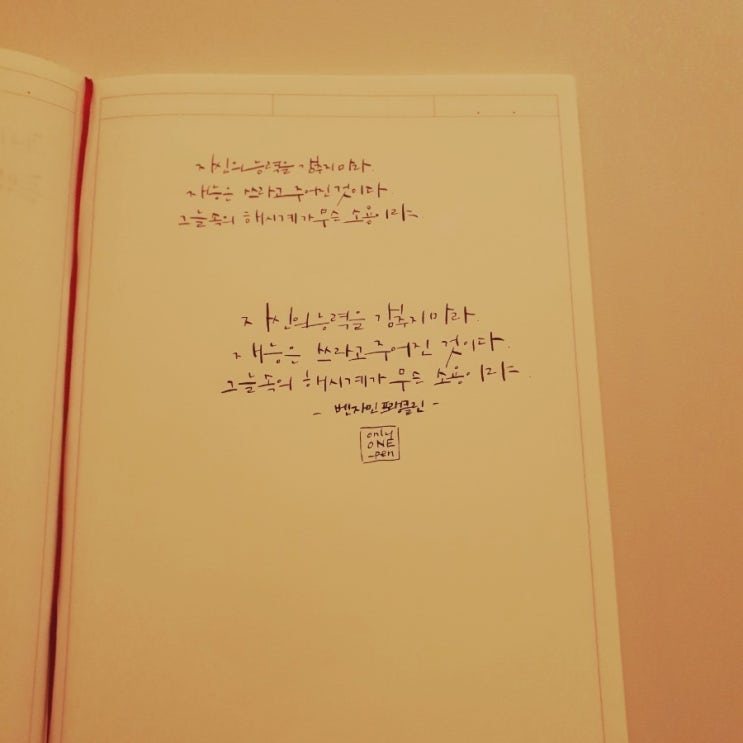 자신의 능력을 감추지 마라.
재능은 쓰라고 주어진 것이다.
그늘 속의 해시계가 무슨 소용이랴
자신의 능력을 감추지 마라.
재능은 쓰라고 주어진 것이다.
그늘 속의 해시계가 무슨 소용이랴.
- 벤자민 프랭클린 -
only
ONE
-pen